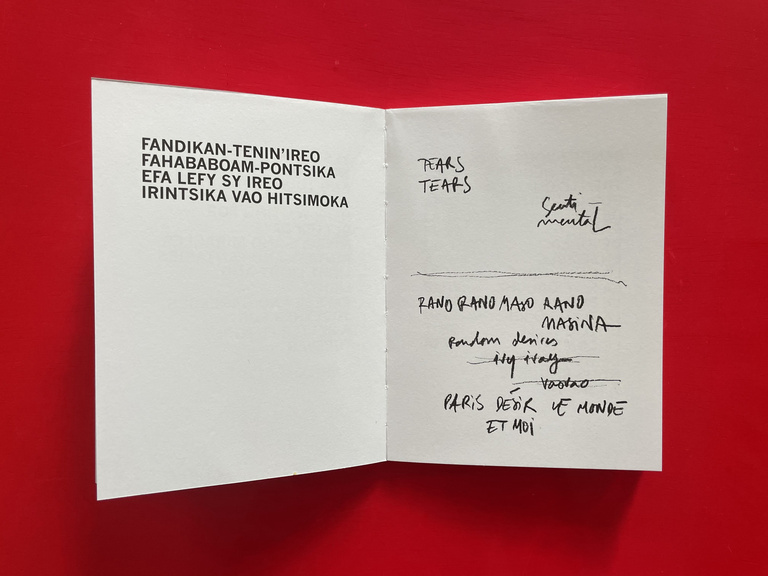 FANDIKAN-TENIN'IREO
FAHABABOAM-PONTSIKA
EFA LEFY SY IREO
IRINTSIKA VAO HITSIMOKA
TEARS
TEARS
Senti-
mental
RANO RANO MASO RANO
MASINA
random desires
iry iray
vaovao
PARIS DÉSIR LE MONDE
ET MOI